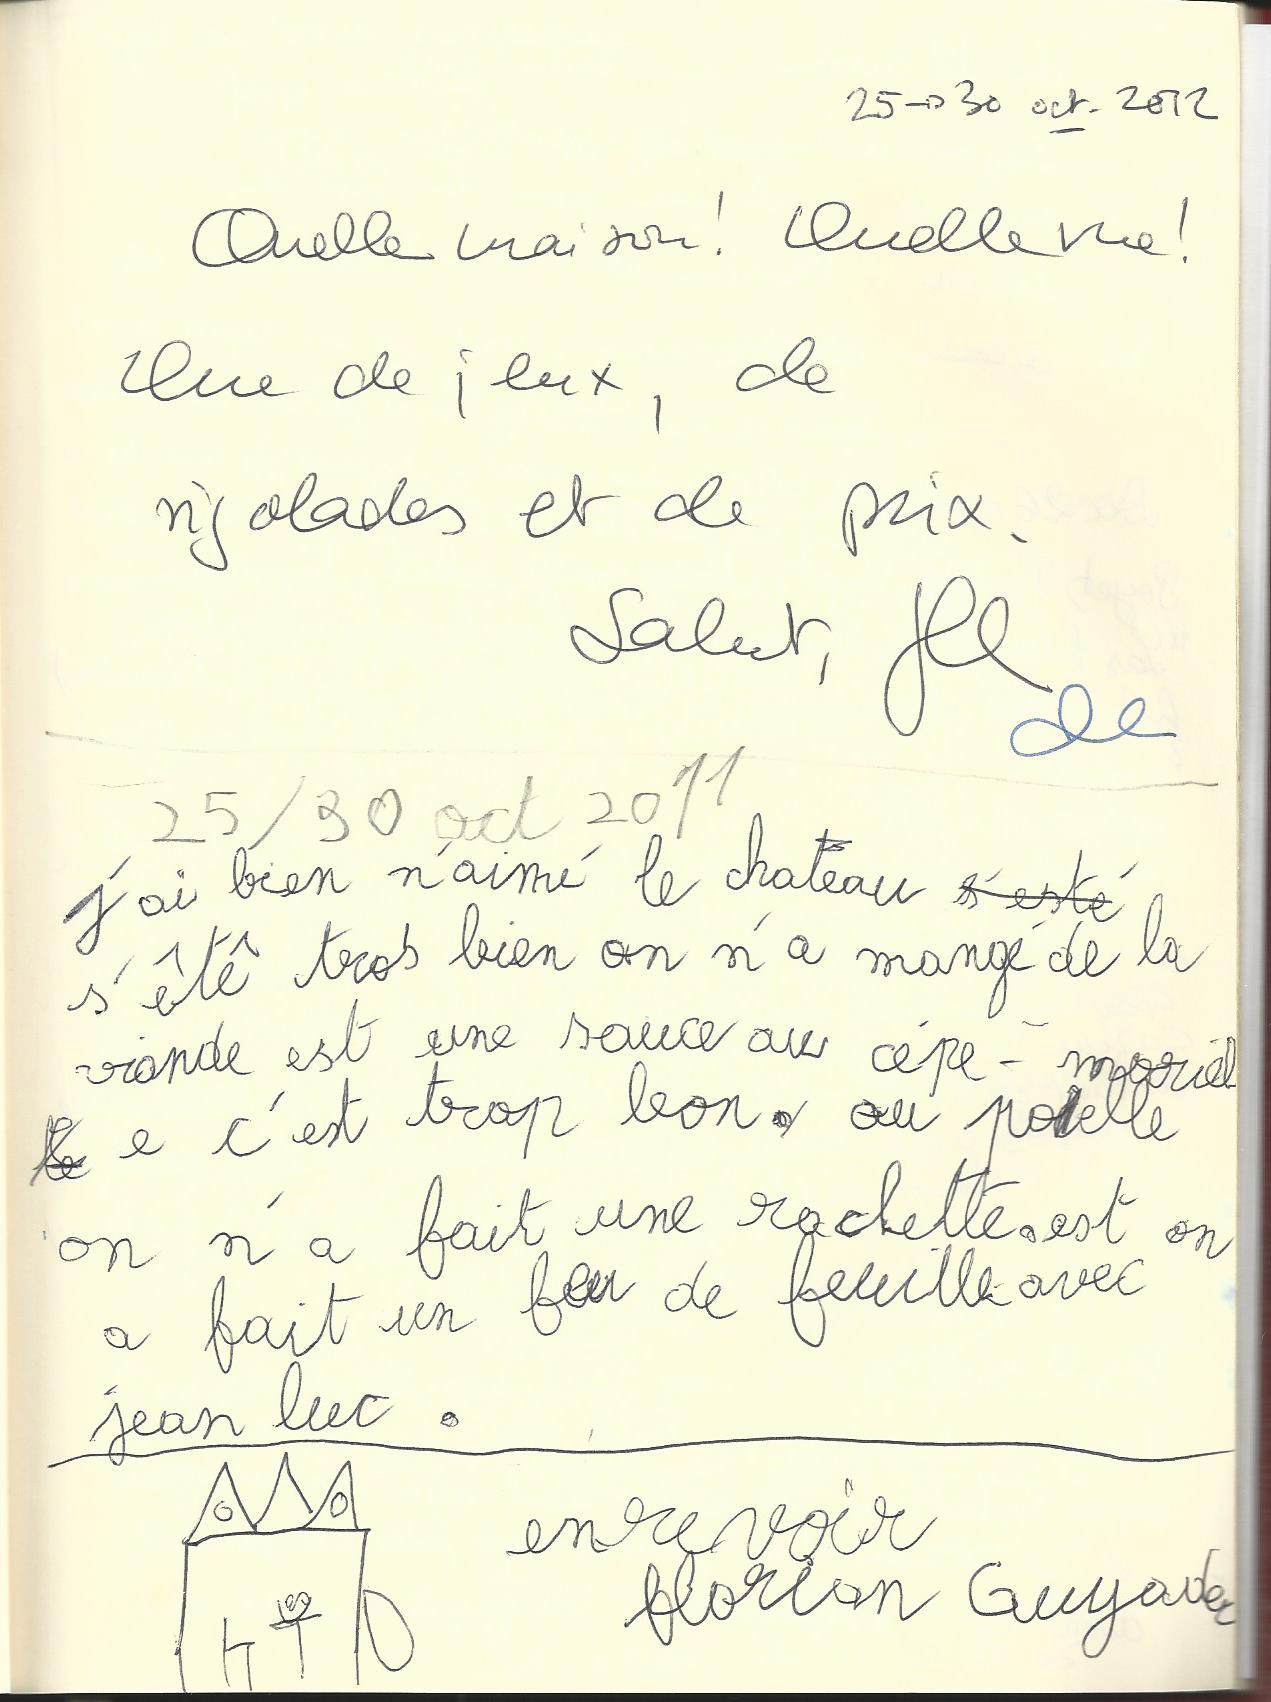 25→30 oct. 2012
Quelle maison! Quelle vue!
Que de jeux, de
rigolades et de prix.
Salut,
de
25/30 oct 2011
j'ai bien n'aimé le chateau s'esté
s'êtê tros bien on n'a mangé de la
viande est une sauce au cépe - moriel
le e c'est trop bon. au poielle
on n'a fait une rachette. est on
a fait un feu de feuille avec
jean luc .
enrevoir
florian Guyader